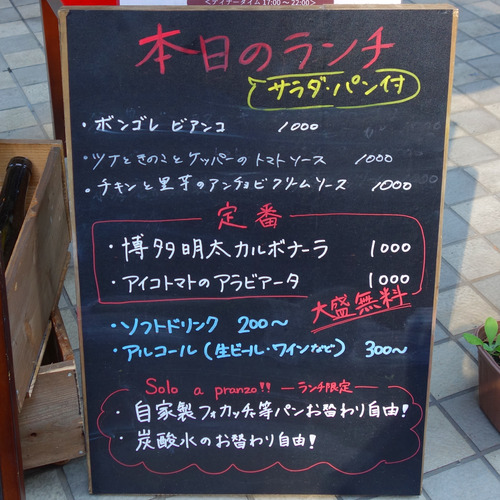 <ディナータイム 17:00～22:00>
本日のランチ
サラダ・パン付
・ボンゴレ ビアンコ 1000
・ツナときのことケッパーのトマトソース 1000
・チキンと里芋のアンチョビクリームソース 1000
定番
・博多明太カルボナーラ 1000
・アイコトマトのアラビアータ 1000
大盛無料
・ソフトドリンク 200～
・アルコール（生ビール・ワインなど） 300～
Solo a pranzo!! ーランチ限定ー
・自家製フォカッチャ等パンお替わり自由！
・炭酸水のお替わり自由！